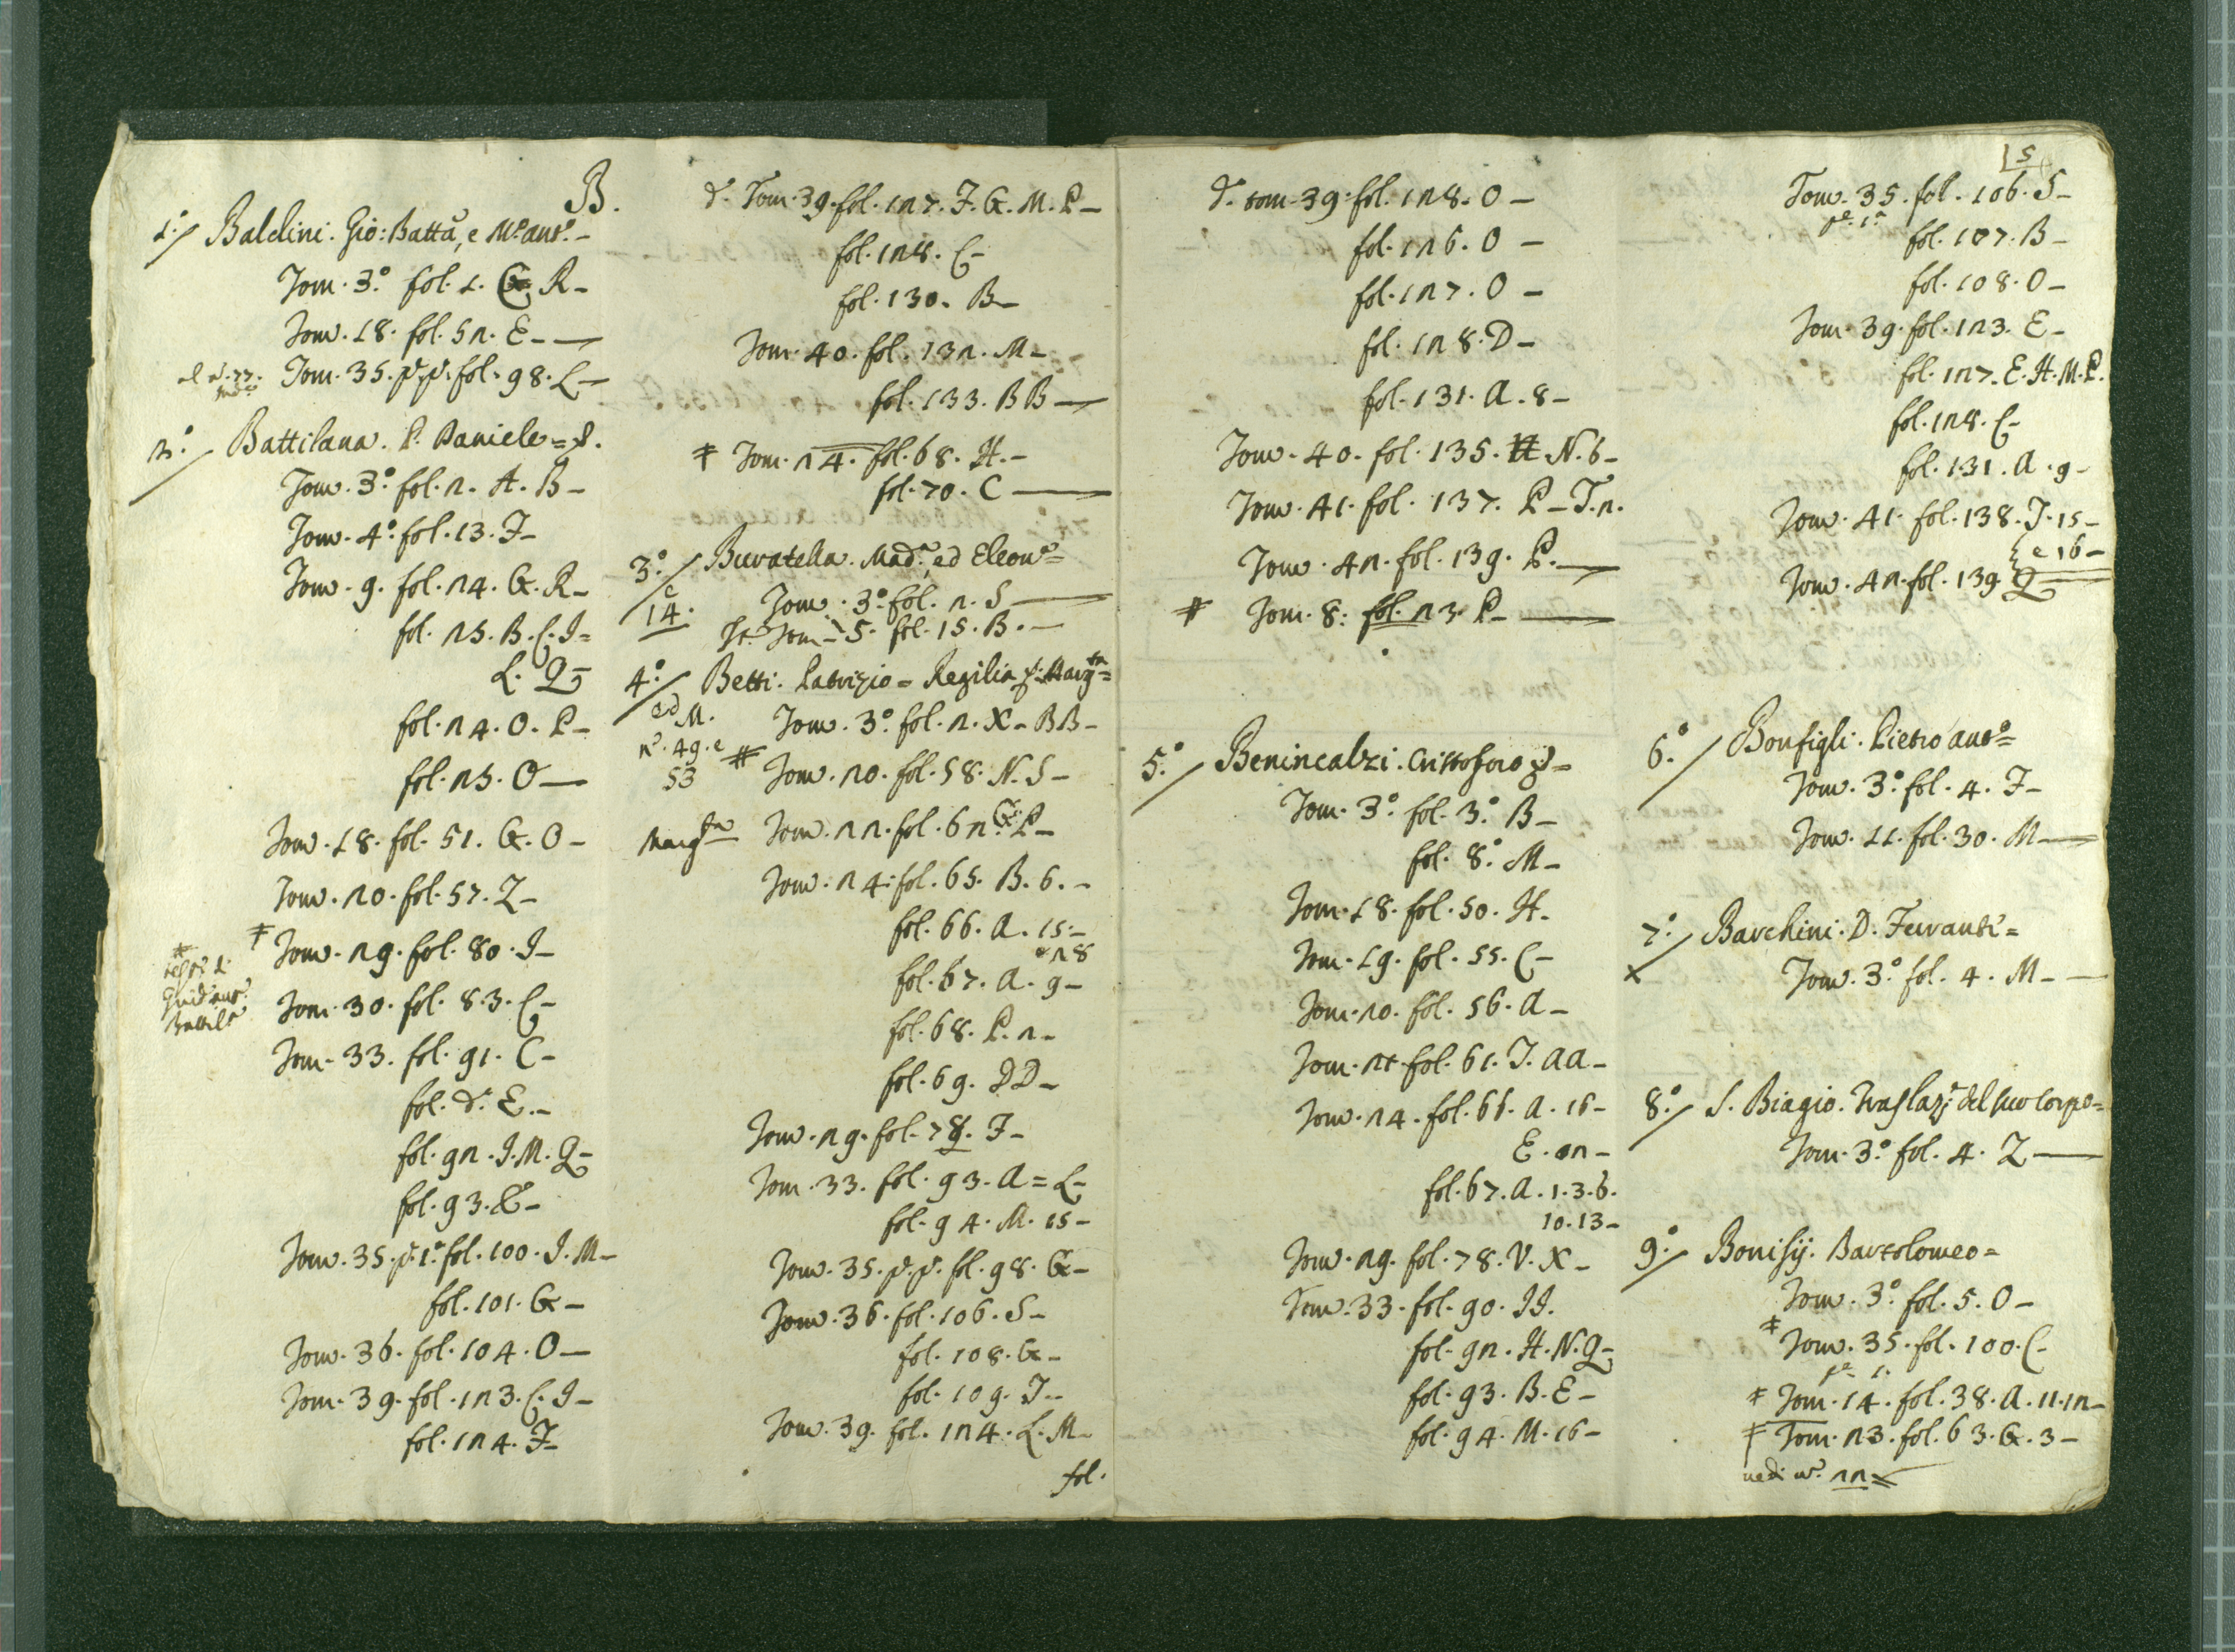 B.
1:/ Baldini. Gio: Batta, e M.ª ant.ª-
Tom. 3.º fol. 1. R-
Tom. 18. fol. 52. E-
Tom. 35. p. p. fol. 98. L-
2:/ Battilana. P. Daniele=
Tom. 3.º fol. 2. A. B-
Tom. 4.º fol. 13. F-
Tom. 9. fol. 24. G. R-
fol. 25. B. C. I=
L. Q-
fol. 24. O. P-
fol. 25. O-
Tom. 18. fol. 51. G. O-
Tom. 20. fol. 57. Z-
Tom. 29. fol. 80. I-
Tom. 30. fol. 83. C-
Tom. 33. fol. 91. C-
fol. d.º E.-
fol. 92. I. M. Q-
fol. 93.
Tom. 35. p. 1.ª fol. 100. I. M-
fol. 101. G-
Tom. 36. fol. 104. O-
Tom. 39. fol. 123. C. I-
fol. 124. F-
d.º Tom. 39. fol. 127. F. G. M. P-
fol. 128. C-
fol. 130. B-
Tom. 40. fol. 132. M-
fol. 133. BB-
Tom. 24. fol. 68. H.-
fol. 70. C-
3:/ Buratella. Mad.ª, ed Eleon.ª=
14. Tom. 3.º fol. 2. S-
Tom. 5. fol. 15. B.-
4:/ Betti. Patrizio= Regilia
ed M. Tom. 3.º fol. 2. X- BB-
n.º 49. e
53 Tom. 20. fol. 58. N. S-
Tom. 22. fol. 62. G. P-
Tom. 24. fol. 65. B. 6.-
fol. 66. A. 15-
e 28
fol. 67. A. 9-
fol. 68. P. 2-
fol. 69. DD-
Tom. 29. fol. 78. F-
Tom. 33. fol. 93. A= L-
fol. 94. M. 15-
Tom. 35. p. p. fol. 98. G-
Tom. 36. fol. 106. S-
fol. 108. G-
fol. 109. I-
Tom. 39. fol. 124. L. M-
fol.
d.º tom. 39. fol. 128. O-
fol. 126. O-
fol. 127. O-
fol. 128. D-
fol. 131. A. 8-
Tom. 40. fol. 135. N. 6-
Tom. 41. fol. 137. P- T. 2.
Tom. 42. fol. 139. P.-
Tom. 8: fol. 23. P-
5:/ Benincalzi. Cristoforo
Tom. 3.º fol. 3.º B-
fol. 8.º M-
Tom. 18. fol. 50. H-
Tom. 19. fol. 55. C-
Tom. 20. fol. 56. A-
Tom. 21. fol. 61. I. AA-
Tom. 24. fol. 66. A. 16-
fol. 67. A. 1. 3. 6.
10. 13-
Tom. 29. fol. 78. V. X-
Tom. 33. fol. 90. II.
fol. 92. H. N. Q-
fol. 93. B. E-
fol. 94. M. 16-
5
Tom. 35. fol. 106. S-
p.e 1.ª
fol. 107. B-
fol. 108. O-
Tom. 39. fol. 123. E-
fol. 127. E. H. M. P.
fol. 128. C-
fol. 131. A. 9-
Tom. 41. fol. 138. I. 15-
e 16-
Tom. 42. fol. 139. Q
6:/ Bonfigli. Pietro Ant.º=
Tom. 3.º fol. 4. F-
Tom. 11. fol. 30. M-
7:/ Barchini. D. Ferranti=
Tom. 3.º fol. 4. M-
8:/ S. Biagio. Traslaz.e del suo Corpo=
Tom. 3.º fol. 4. Z-
9:/ Bonisij. Bartolomeo=
Tom. 3.º fol. 5. O-
Tom. 35. fol. 100. C-
p.e 1.
Tom. 14. fol. 38. A. 11. 12-
Tom. 23. fol. 63. G. 3-
vedi n.º 22